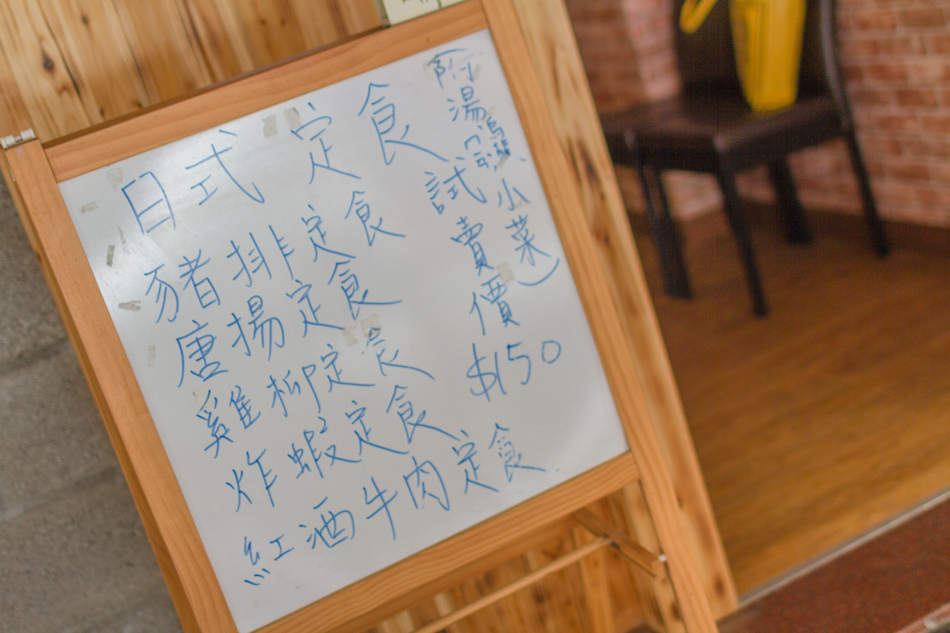 日式定食
豬排定食
唐揚定食
雞柳定食
炸蝦定食
紅酒牛肉定食
附湯、小菜)
試賣價
$150